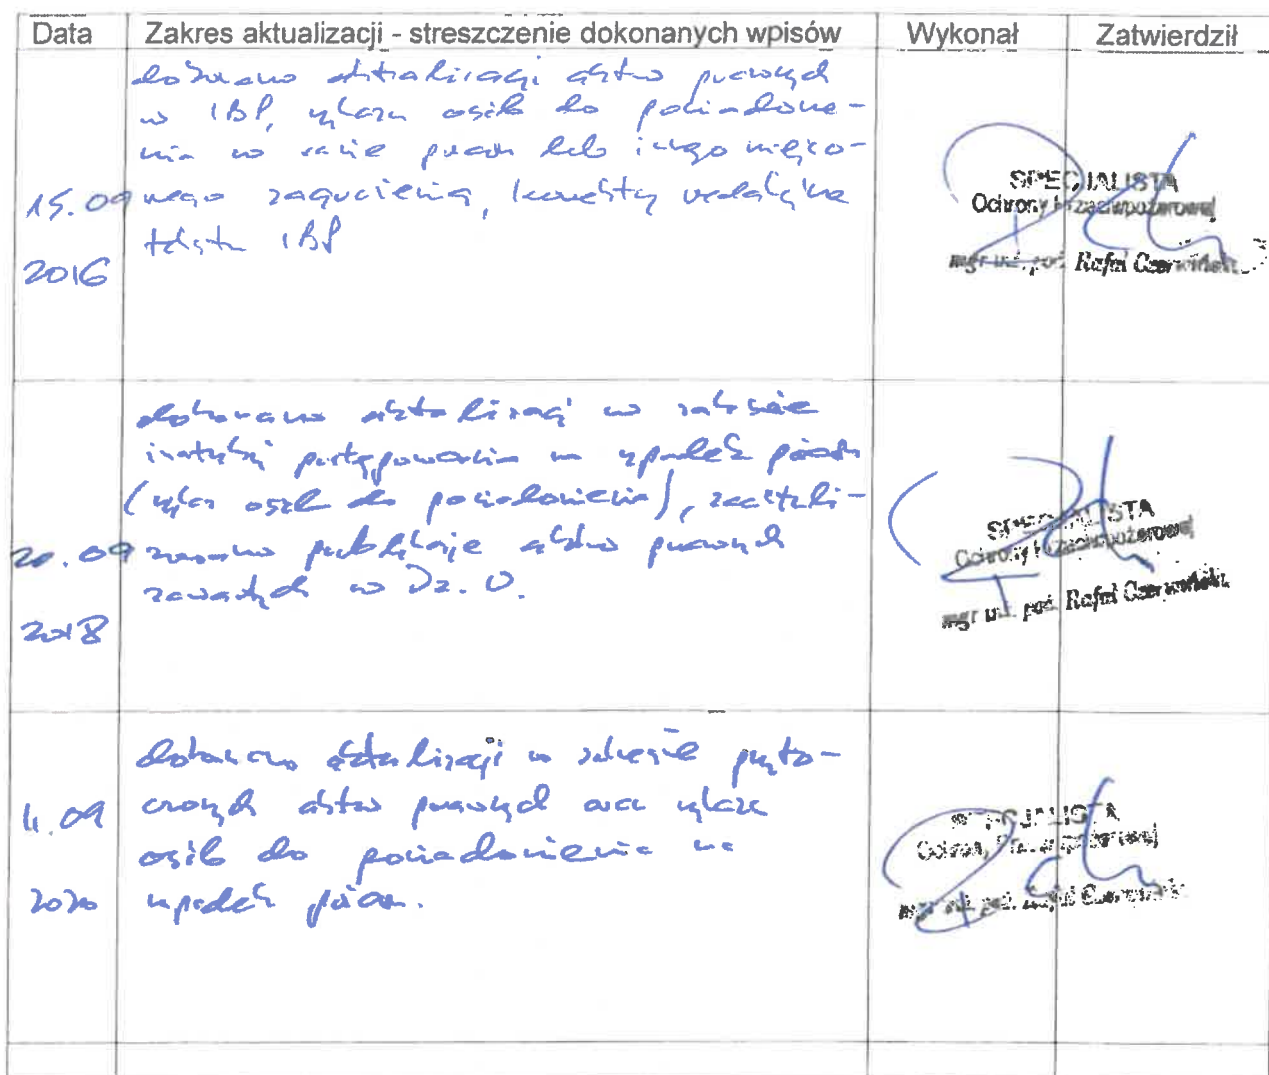 Data Zakres aktualizacji - streszczenie dokonanych wpisów Wykonał Zatwierdził
dokonano aktualizacji aktów prawnych
w IBP, wykazu osób do powiadomie-
nia w razie pożaru lub innego miejsco-
wego zagrożenia, korekty redakcyjne
tekstu IBP
15.09
2016
SPECJALISTA
Ochrony Przeciwpożarowej
mgr inż. poż. Rafał Czerwiński
dokonano aktualizacji w zakresie
instrukcji postępowania na wypadek pożaru
(wykaz osób do powiadomienia), zaktuali-
zowano publikacje aktów prawnych
zawartych w Dz. U.
20.09
2018
SPECJALISTA
Ochrony Przeciwpożarowej
mgr inż. poż. Rafał Czerwiński
dokonano aktualizacji w zakresie przyto-
czonych aktów prawnych oraz wykazu
osób do powiadomienia na
wypadek pożaru.
11.09
2020
SPECJALISTA
Ochrony Przeciwpożarowej
mgr inż. poż. Rafał Czerwiński